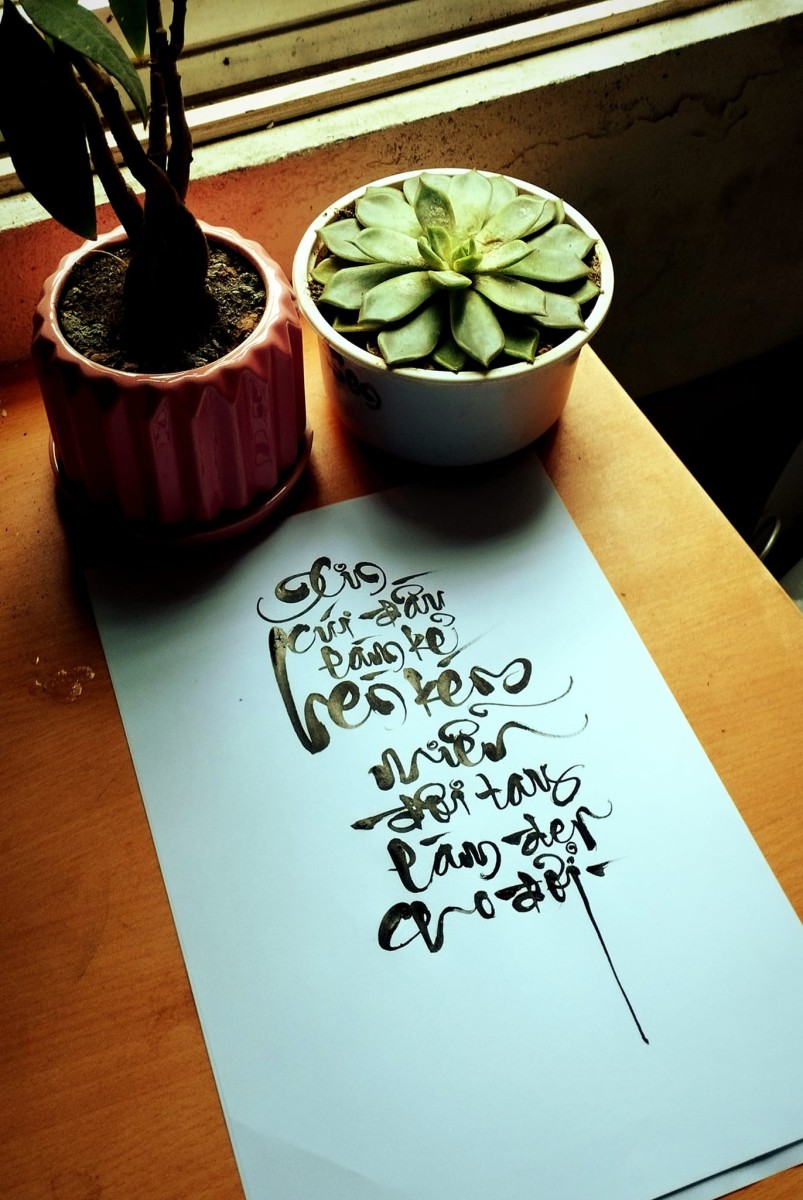 Xin
cúi đầu
làm kẻ
hèn kém
miễn
đôi tay
làm đẹp
cho đời